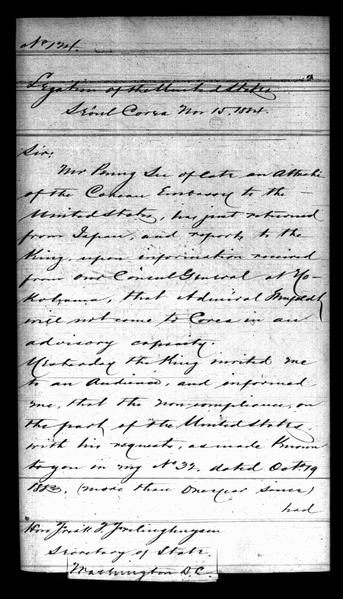 No 124.
Legation of the United States
Séoul Corea Nov 15, 1884.
Sir:
Mr Penng See of late an Attaché
of the Corean Embassy to the
United States, has just returned
from Japan, and reports to the
King, upon information received
from our Consul General at Yo-
kohama, that Admiral Shufeldt
will not come to Corea in an
advisory capacity.
Yesterday the King invited me
to an Audience, and informed
me, that the non-compliance, on
the part of the United States,
with his requests, as made known
to you in my No 32, dated Octr 19
1883, (more than one year since)
had
Hon. Fredk T. Frelinghuysen
Secretary of State
Washington D.C.